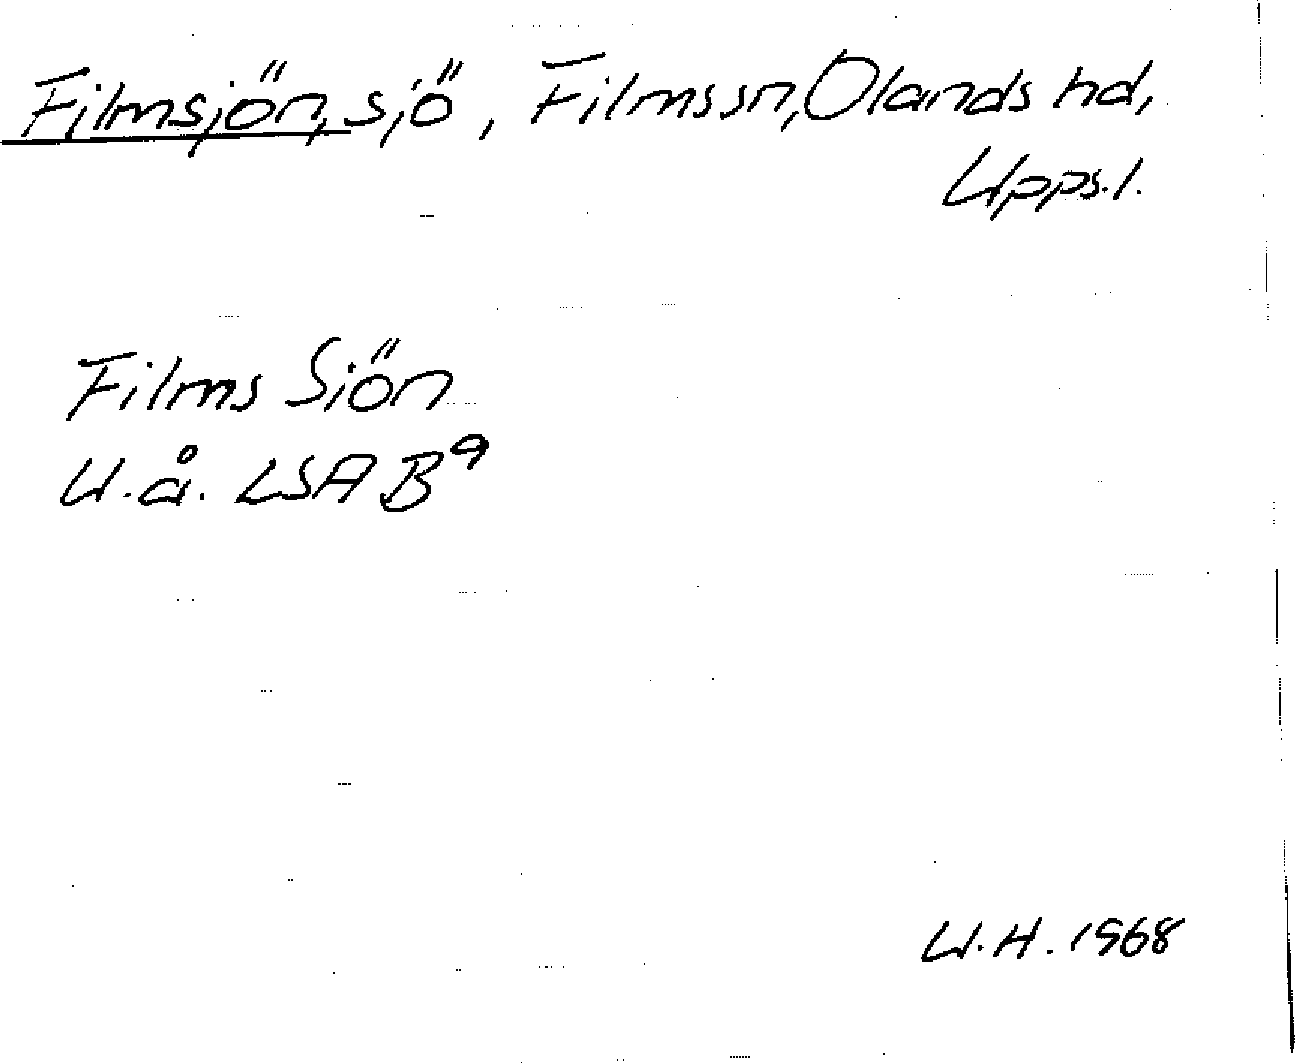 Filmsjön, sjö, Films sn, Olands hd,
Upps.l.
Films Siön
U.å. LSA B⁹
U.H. 1968